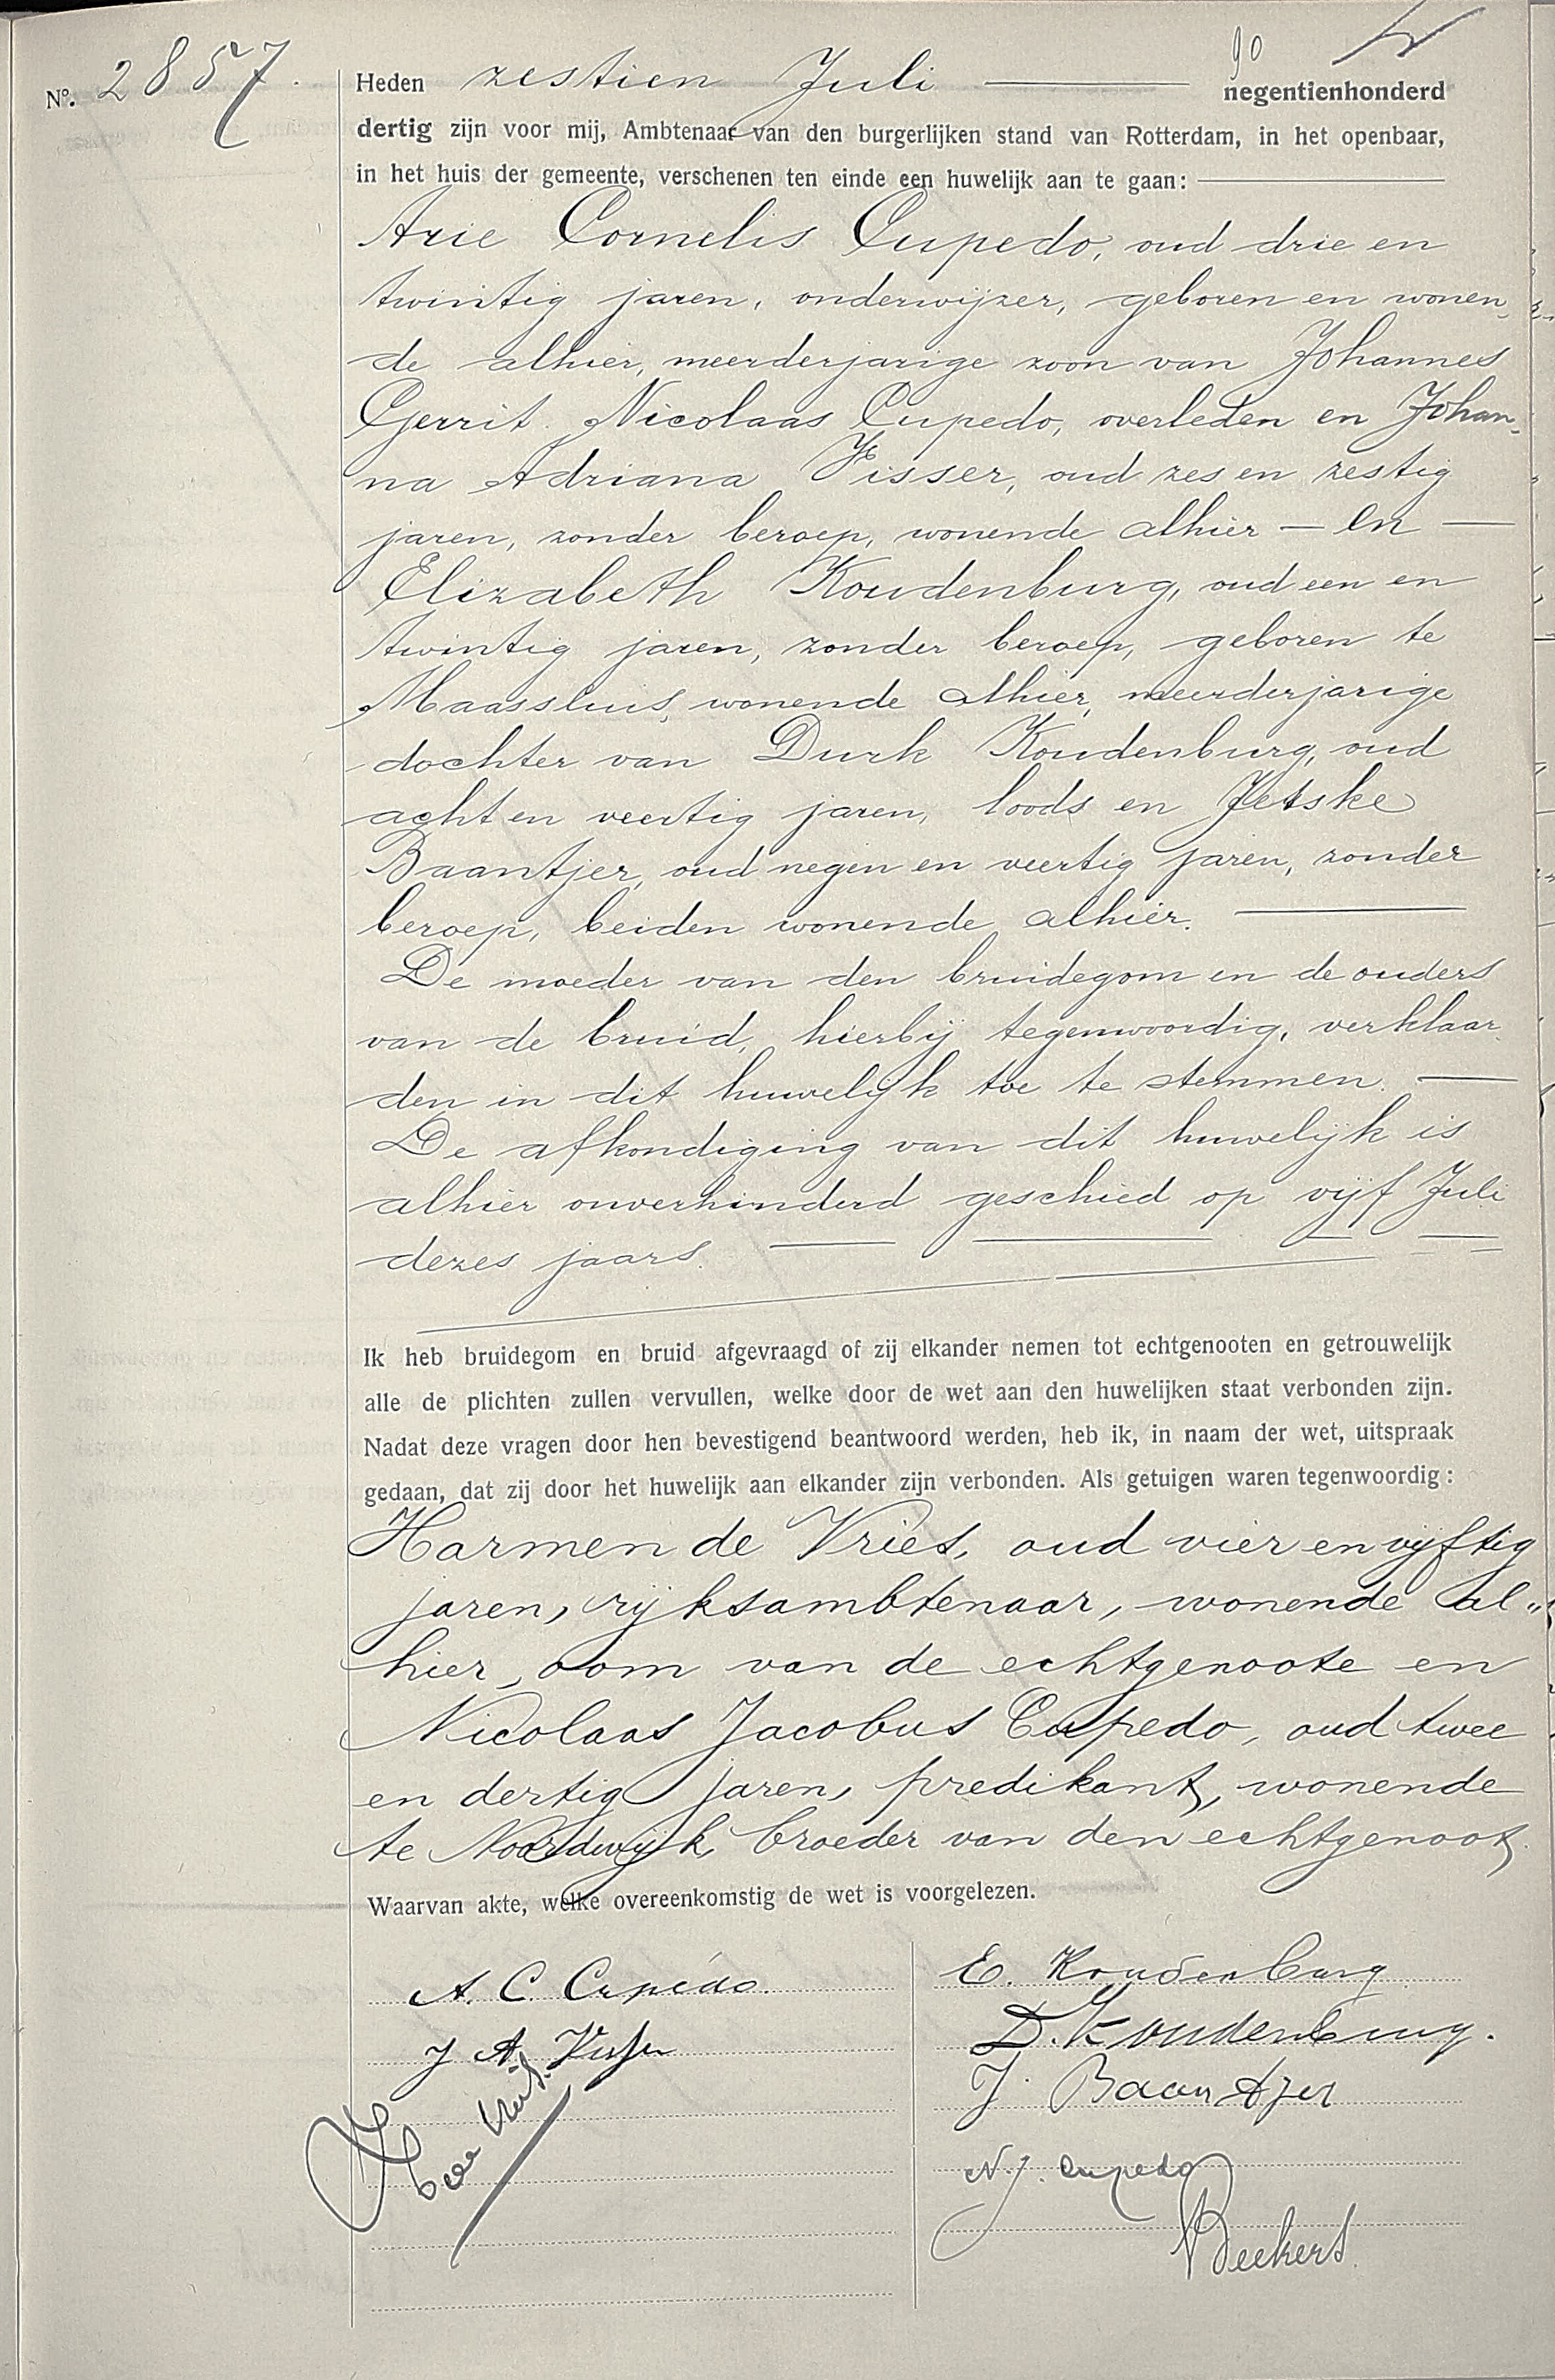 90
No. 2857.
Heden zestien Juli negentienhonderd
dertig zijn voor mij, Ambtenaar van den burgerlijken stand van Rotterdam, in het openbaar,
in het huis der gemeente, verschenen ten einde een huwelijk aan te gaan:
Arie Cornelis Cupedo, oud drie en
twintig jaren, onderwijzer, geboren en wonen-
de alhier, meerderjarige zoon van Johannes
Gerrit Nicolaas Cupedo, overleden en Johan-
na Adriana Visser, oud zes en zestig
jaren, zonder beroep, wonende alhier — en —
Elizabeth Koudenburg, oud een en
twintig jaren, zonder beroep, geboren te
Maassluis, wonende alhier, meerderjarige
dochter van Durk Koudenburg, oud
acht en veertig jaren, loods en Jetske
Baantjer, oud negen en veertig jaren, zonder
beroep, beiden wonende alhier.
De moeder van den bruidegom en de ouders
van de bruid, hierbij tegenwoordig, verklaar-
den in dit huwelijk toe te stemmen.
De afkondiging van dit huwelijk is
alhier onverhinderd geschied op vijf Juli
dezes jaars.
Ik heb bruidegom en bruid afgevraagd of zij elkander nemen tot echtgenooten en getrouwelijk
alle de plichten zullen vervullen, welke door de wet aan den huwelijken staat verbonden zijn.
Nadat deze vragen door hen bevestigend beantwoord werden, heb ik, in naam der wet, uitspraak
gedaan, dat zij door het huwelijk aan elkander zijn verbonden. Als getuigen waren tegenwoordig:
Harmen de Vries, oud vier en vijftig
jaren, rijksambtenaar, wonende al„
hier, oom van de echtgenoote en
Nicolaas Jacobus Cupedo, oud twee
en dertig jaren, predikant, wonende
te Noordwijk, broeder van den echtgenoot.
Waarvan akte, welke overeenkomstig de wet is voorgelezen.
A. C. Cupédo.
E. Koudenburg
J A. Visser
D. Koudenburg.
J. Baantjer
N.J. Cupedo
Beekers.